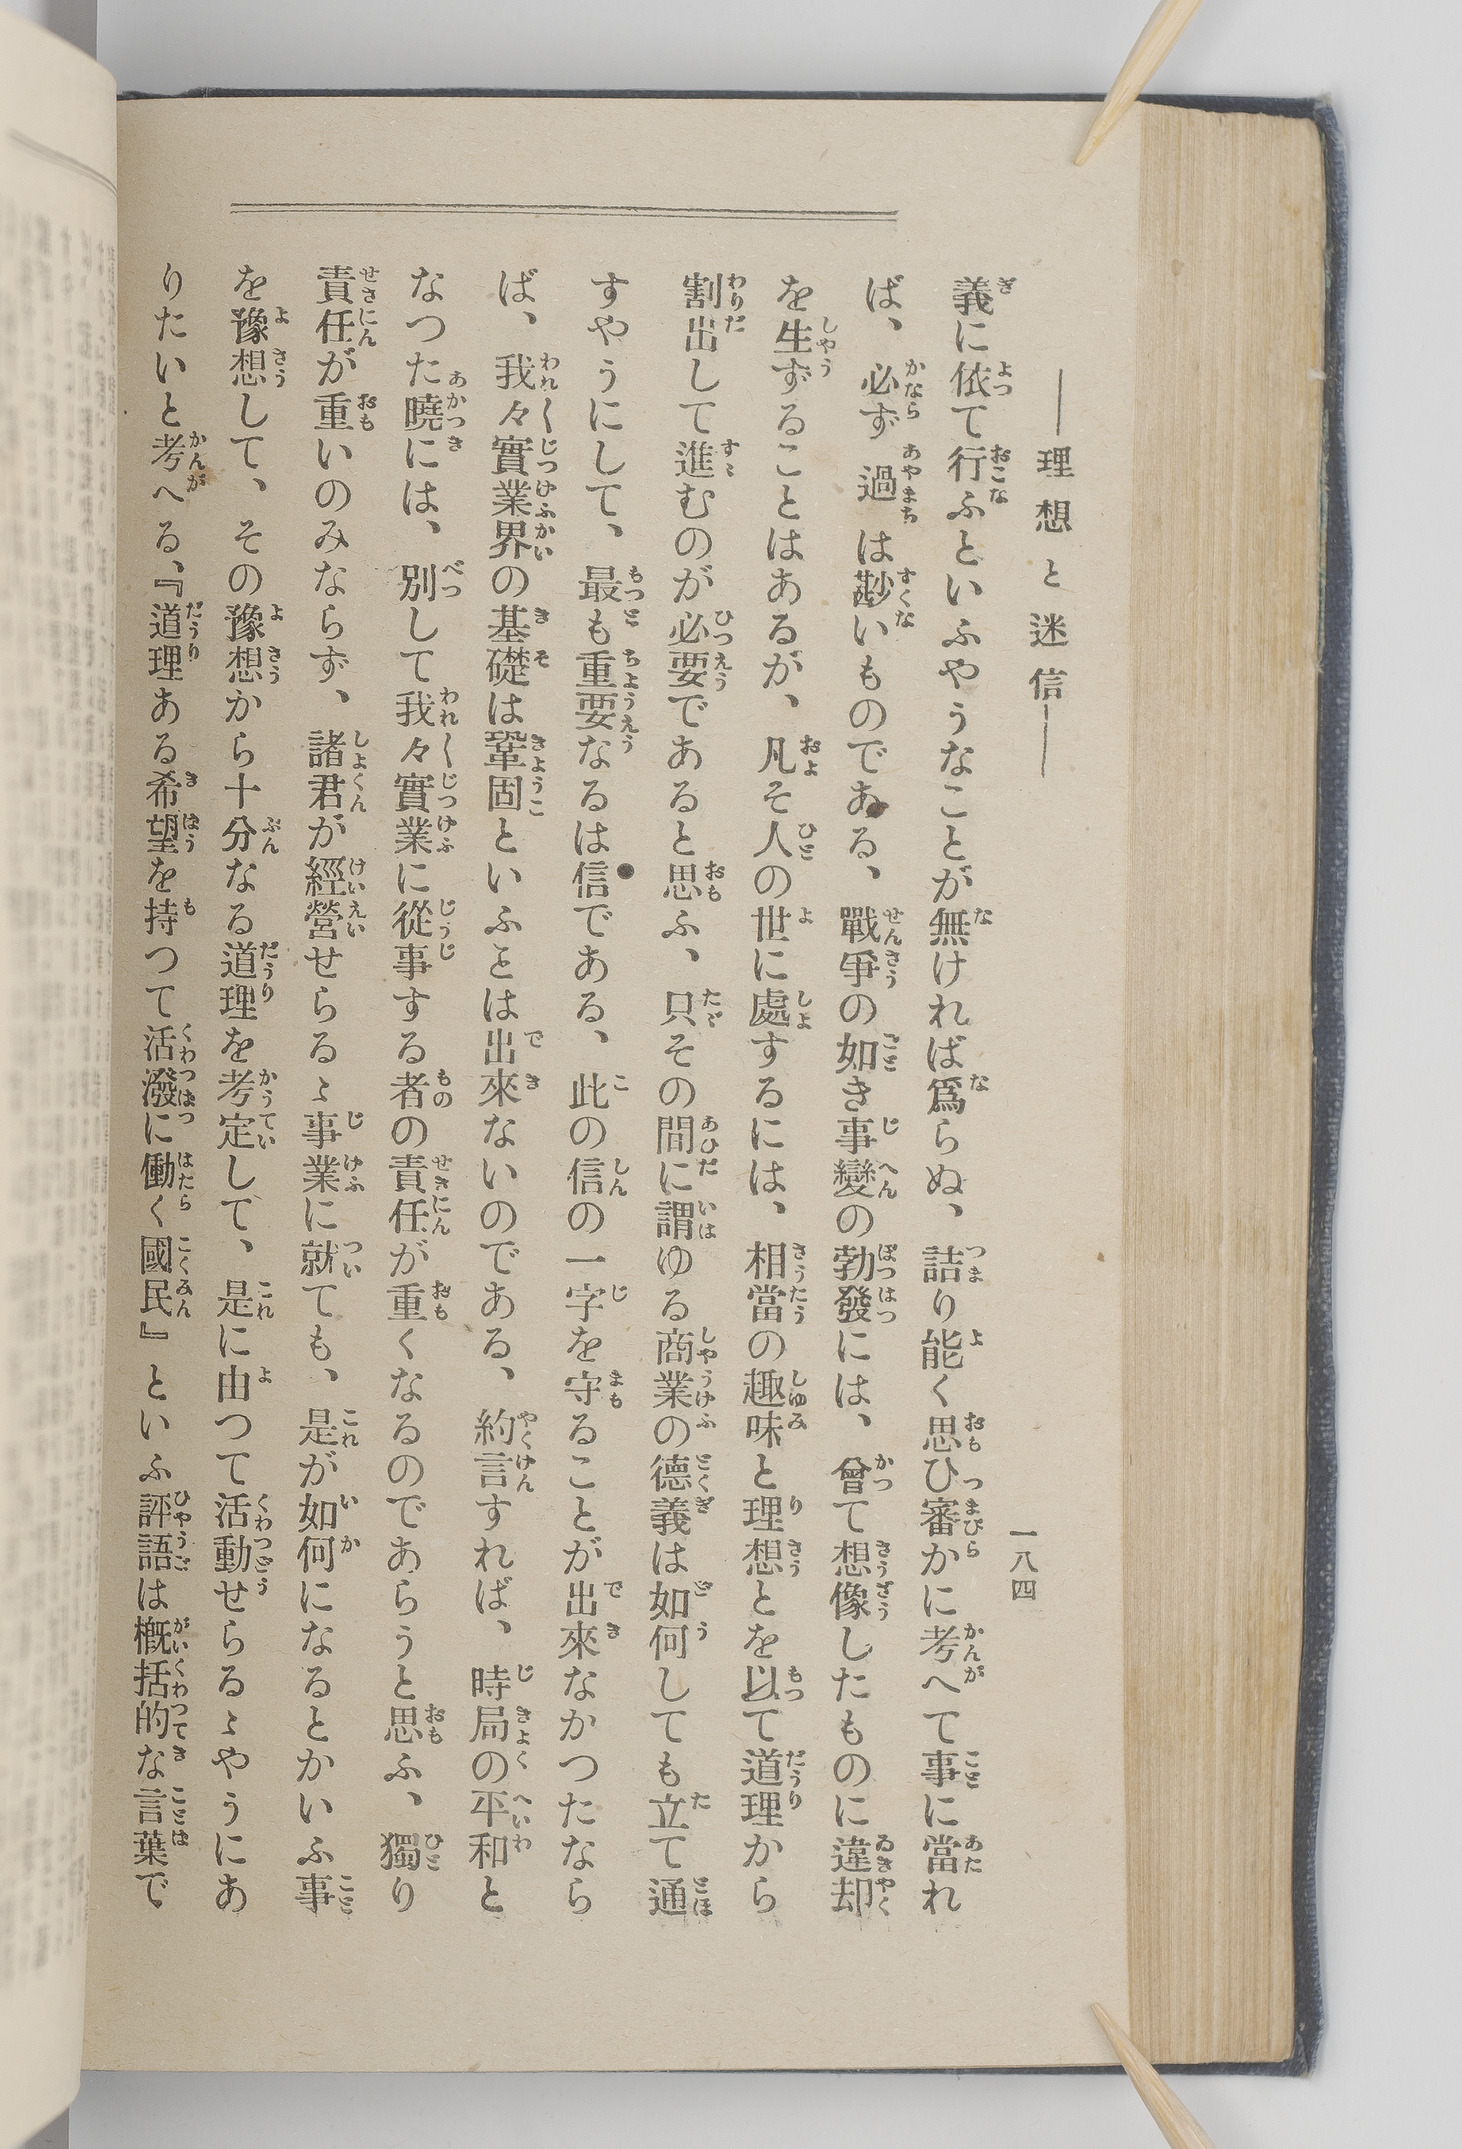 ――理想と迷信――
一八四
義に依て行ふといふやうなことが無ければ爲らぬ、詰り能く思ひ審かに考へて事に當れ
ば、必ず過は尠いものである、戰爭の如き事變の勃發には、曾て想像したものに違却
を生ずることはあるが、凡そ人の世に處するには、相當の趣味と理想とを以て道理から
割出して進むのが必要であると思ふ、只その間に謂ゆる商業の德義は如何しても立て通
すやうにして、最も重要なるは信である、此の信の一字を守ることが出來なかつたなら
ば、我々實業界の基礎は鞏固といふとは出來ないのである、約言すれば、時局の平和と
なつた曉には、別して我々實業に從事する者の責任が重くなるのであらうと思ふ、獨り
責任が重いのみならず、諸君が經營せらるゝ事業に就ても、是が如何になるとかいふ事
を豫想して、その豫想から十分なる道理を考定して、是に由つて活動せらるゝやうにあ
りたいと考へる、『道理ある希望を持つて活潑に働く國民』といふ評語は概括的な言葉で